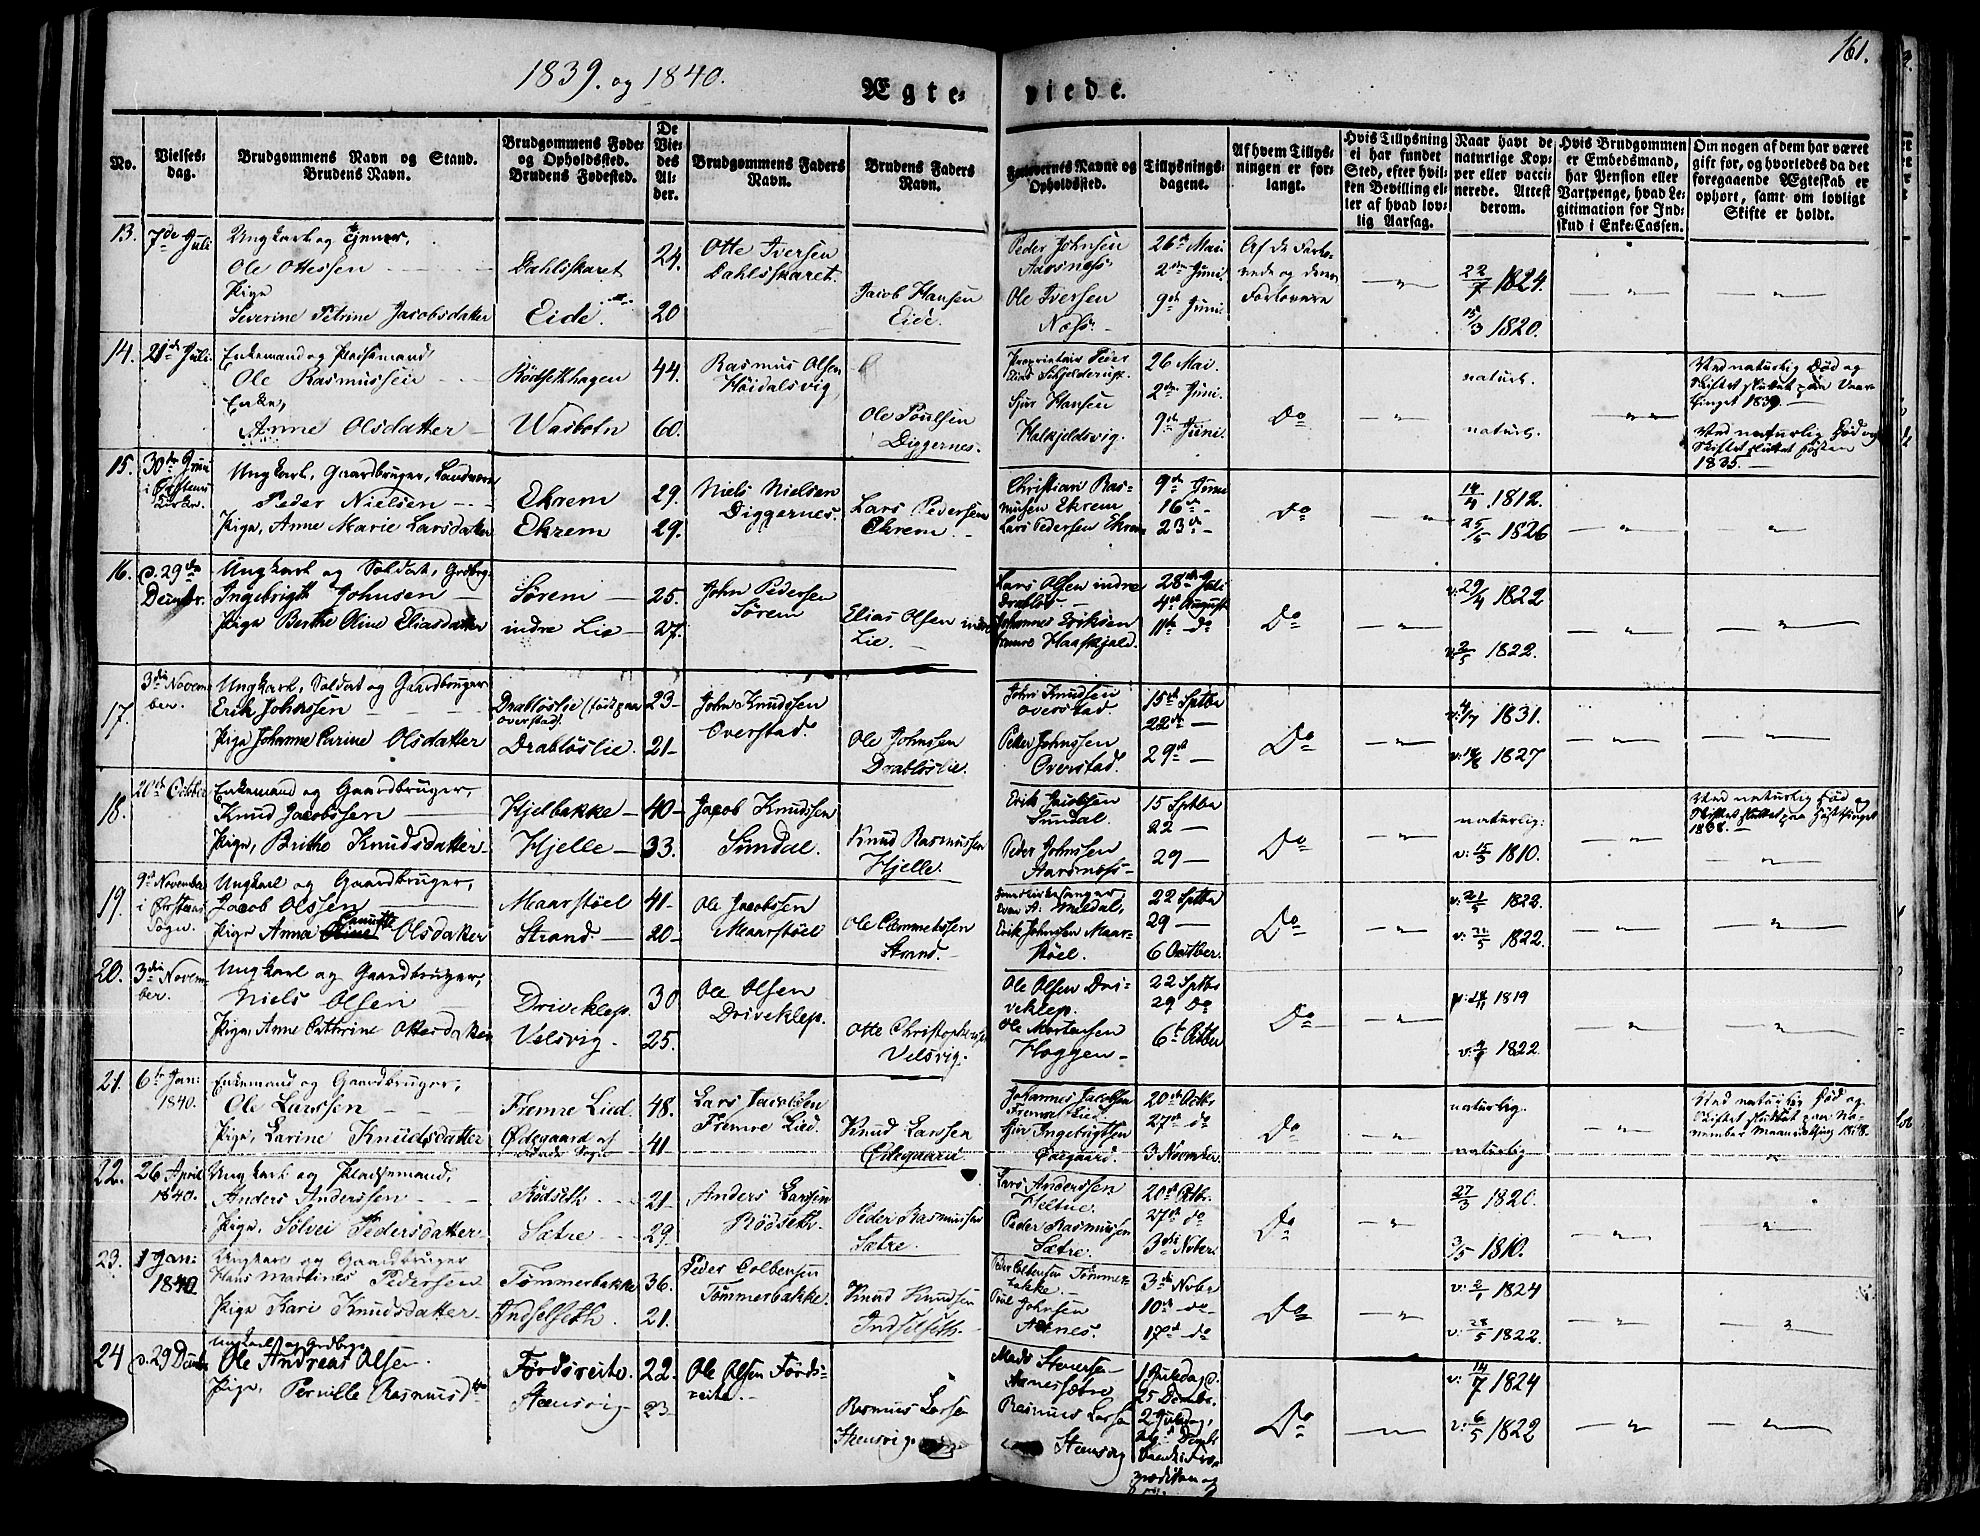 1839. og 1840.
Ægte-
viede.
161.
No.
Vielses-
dag.
Brudgommens Navn og Stand.
Brudens Navn.
Brudgommens Føde-
og Opholdssted.
Brudens Fødested.
De
Vie-
des
Al-
der.
Brudgommens Faders
Navn.
Brudens Faders
Navn.
Forlovernes Navne og
Opholdssted.
Tillysnings-
dagene.
Af hvem Tillys-
ningen er for-
langt.
Hvis Tillysning
ei har fundet
Sted, efter hvil-
ken Bevilling el-
ler af hvad lov-
lig Aarsag.
Naar havt de
naturlige Kop-
per eller vacci-
nerede. Attest
derom.
Hvis Brudgommen
er Embedsmand,
har Pension eller
Vartpenge, hvad Le-
gitimation for Ind-
skud i Enke-Cassen.
Om nogen af dem har været
gift før, og hvorledes da det
foregaaende Ægteskab er
ophørt, samt om lovligt
Skifte er holdt.
13. 7de Juli
Ungkarl og
Ole Ottessen
Pige
Severine Petrine Jacobsdatter
Dahlsskaret
Eide.
24.
20
Otte Iversen
Dahlsskaret.
Jacob Hansen
Eide.
Peder Johnsen
Aarsnoss
Ole Iversen
26de Mai
2den Juni.
9de Juni
Af de Forlo-
vede og deres
Forlovere
22/7 1824.
15/3 1820.
14. 21de Juli.
Enkemand og Pladsmand
Ole Rasmussen
Enke,
Anne Olsdatter
Rødsethhagen
Wasbotn
44.
60.
Rasmus Olsen
Høidalsvig
Ole Poulsen
Diggernes.
Proprietair Peder
Elias Schjelderup.
Sjur Hansen
Halkjeldsvig.
26 Mai.
2den Juni.
9de Juni.
Do
naturl.
naturl.
Ved naturlig Død og
Skiftet sluttet paa Vaar-
tinget 1839.
Ved naturlig Død og
Skiftet sluttet Høsten
1835.
15. 30te Juni
i Ørstens
Kirke.
Ungkarl, Gaardbruger, Landværn
Peder Nielsen
Pige, Anne Marie Larsdatter
Ekrem
Ekrem
29.
29.
Niels Nielsen
Diggernes.
Lars Pedersen
Ekrem.
Christian Ras-
musen Ekrem
Lars Pedersen Ekrem
9de Juni
16de
23de
Do
14/4 1812.
25/5 1826
16. d. 29de
Decembr.
Ungkarl og Soldat, Grdbrg.
Ingebrigt Johnsen
Pige Berthe Oline Eliasdatter
Sørem
indre Lie
25.
27.
John Pedersen
Sørem
Elias Olsen indre
Lie.
Lars Olsen indre
Drabløs.
Johannes Eriksen
fremre Haaskjold.
28de Juli
4de August
11te do
Do
v: 29/4 1822
v: 2/5 1822.
17.
3die Novem-
ber.
Ungkarl, Soldat og Gaardbruger
Erik Johnssen
Pige Johanne Karine Olsdatter
Drabløslie (født paa
Overstad).
Drabløslie.
23
21
John Knudssen
Overstad.
Ole Johnssen
Drabløslie.
John Knudsen
Overstad.
Peder Johnssen
Overstad.
15de Sptbr
22de
29de
Do
v: 4/7 1831.
1827
18. 20de October
Enkemand og Gaardbruger,
Knud Jacobssen
Pige, Brithe Knudsdatter
Hjelbakke
Hjelle
40
33.
Jacob Knudssen
Sundal.
Knud Rasmussen
Hjelle.
Erik Jacobsen
Sundal.
Peder Johnssen
Aarsnoss
15 Sptbr
22
29
Do
naturlig:
v: 15/5 1810.
Ved naturlig Død og
Skiftet sluttet paa Høsttinget
1838.
19.
9de November
i Ørstens
Sogn.
Ungkarl og Gaardbruger,
Jacob Olssen
Pige Anna Olsdatter
Maarstøel
Strand.
41
20
Ole Jacobssen
Maarstøel
Ole Clemmetssen
Strand.
Iver A: Meldal,
Erik Johnsen Maar-
støel.
22 Sptbr
29
6 Octber.
Do
v: 21/5 1822.
v: 21/5 1822.
20. 3die Novem-
ber.
Ungkarl og Gaardbruger,
Niels Olsen
Pige Anne Cathrine Ottesdatter
Driveklep.
Velsvig.
30
25.
Ole Olsen
Driveklep.
Otte Christophersen
Velsvig.
Ole Olsen Dri-
veklep.
Ole Mortensen
Hoggen
22 Sptbr
29 Do
6te Octber
Do
1819
1822.
21. 6te Jan:
1840.
Enkemand og Gaardbruger,
Ole Larssen
Pige, Karine Knudsdatter
Fremre Lied.
Ødegaard af
Sogn
48.
41
Lars Jacobsen
Fremre Lied.
Knud Larssen
Ødegaard.
Johannes Jacobsen
Fremre Lied
Sjur Ingebrigtsen
Ødegaard.
20de Octbr
27de do
3 November.
Do
naturlig.
naturlig
Ved naturlig Død og
Skiftet sluttet paa No-
vember Maanedsting 1838.
22. 26 April
1840.
Ungkarl og Pladsmand,
Anders Anderssen
Pige, Silvei Pedersdatter
Rødseth
Sætre
21
29
Anders Larssen
Rødseth.
Peder Rasmussen
Sætre.
Lars Anderssen
Peder Rasmussen
Sætre.
20de Octbr.
27de do
3die Nober.
Do
27/3 1820.
3/5 1810.
23. 1 Jan:
1840
Ungkarl og Gaardbruger
Hans Martines Pedersen
Pige Kari Knudsdatter
Tømmerbakke
Indselseth.
36.
21.
Peder Colbensen
Tømmerbakke.
Knud Knudsen
Indselseth.
Peder Colbensen Tømmer-
bakke.
Poul Johnsen
Aanes.
3die Nober
10de do
17de do
Do
v: 2/1 1824
v: 28/5 1822.
24 d. 29 Decbr
Ungkarl og Grdbrgr
Ole Andreas Olsen.
Pige, Pernille Rasmusdtr
Førdsreite.
Steensvig
22.
23
Ole Olsen Førds-
reite.
Rasmus Larsen
Steensvig.
Mads Steversen
Aanessøbre
Rasmus Larsen
Steensvig
1 Juledag d.
25 Decmbr.
2 Juledag,
Do
v: 14/7 1824
v: 6/5 1822